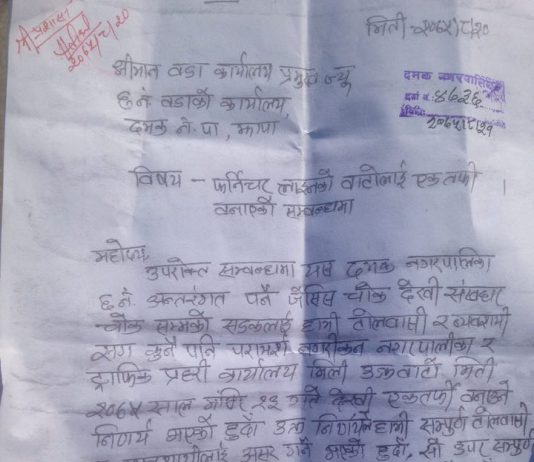 श्री प्रशासन
२०६५/८/२०
मिती-२०६५/८/२०
श्रीमान वडा कार्यालय प्रमुख ज्यू
६ नं. वडाको कार्यालय,
दमक न.पा, झापा
दमक नगरपालिका
दर्ता नं. ४७२६
२०६५/८/२१
विषय - फर्निचर लाइनको वाटोलाई एकतर्फी
वनाएको सम्वन्धमा
महोदय,
उपरोक्त सम्वन्धमा यस दमक नगरपालिका
६ नं. अन्तरगत पर्ने जेसिस चोक देखी संसधार
चोक सम्मको सडकलाई हामी टोलवासी र व्यवसायी
संग कुनै पनि परामर्श नगरीकन नगरपालीका र
ट्राफिक प्रहरी कार्यालय मिली उक्त वाटो मिती
२०६५ साल मंसिर १३ गते देखी एकतर्फी वनाउने
निर्णय भएको हुदाँ उक्त निर्णयले हामी सम्पुर्ण टोलवासी
लाई असर गर्ने भएको हुदाँ, सो उपर सम्पुर्ण